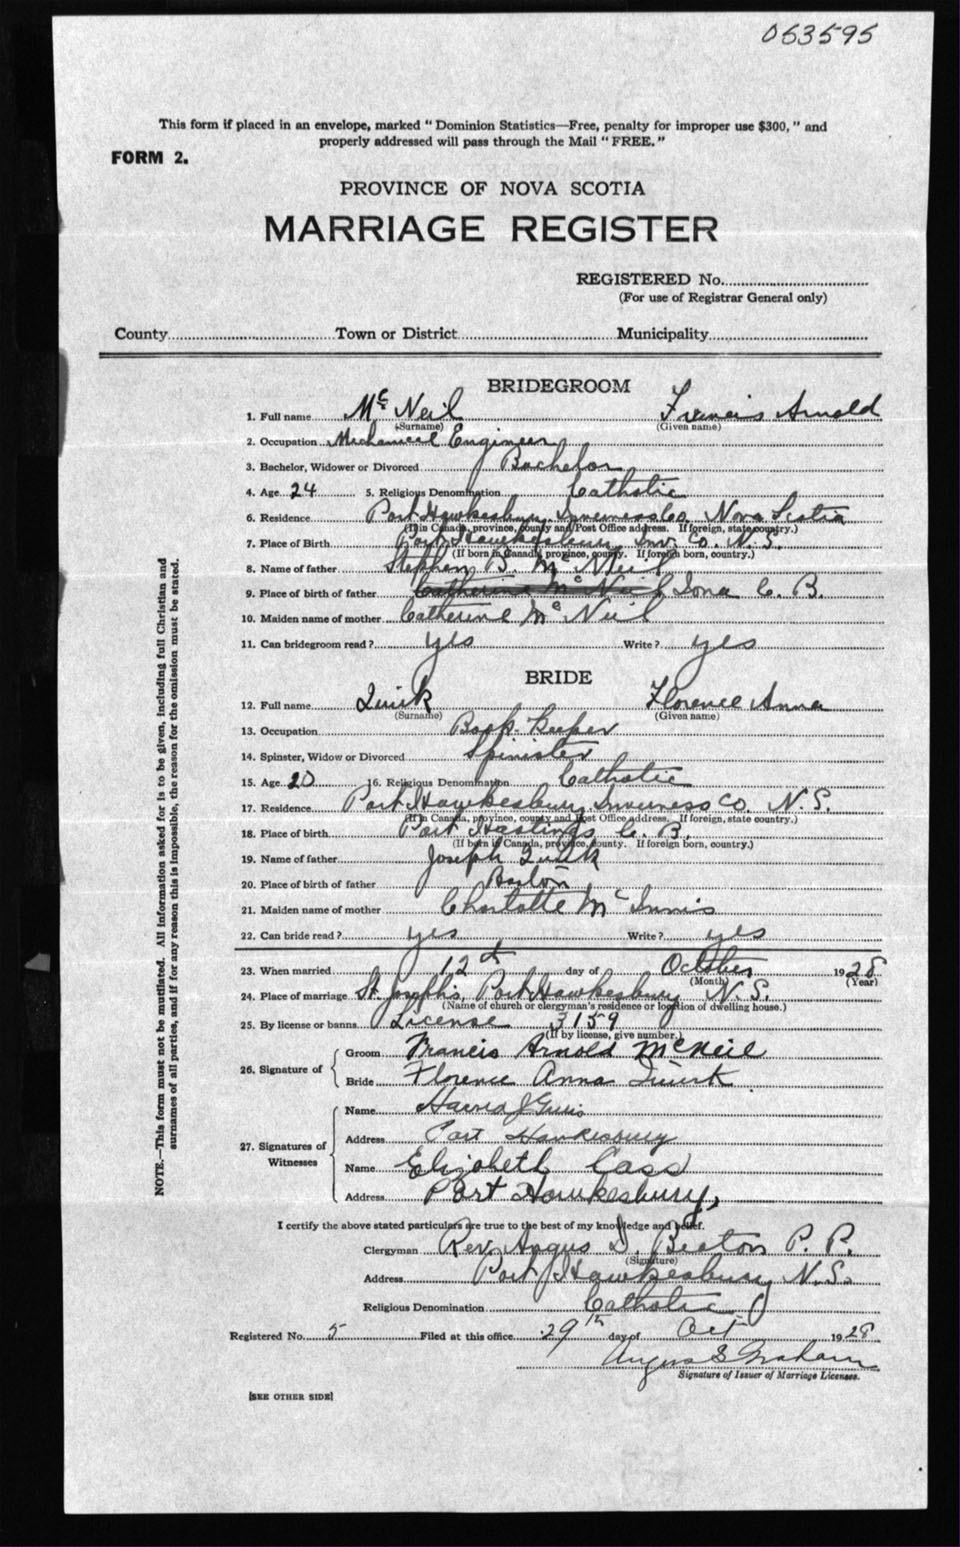 053595
This form if placed in an envelope, marked " Dominion Statistics—Free, penalty for improper use $300, " and
properly addressed will pass through the Mail " FREE. "
FORM 2.
PROVINCE OF NOVA SCOTIA
MARRIAGE REGISTER
REGISTERED No.
(For use of Registrar General only)
County Town or District Municipality
BRIDEGROOM
1. Full name Mc Neil Francis Arnold
(Surname) (Given name)
2. Occupation Mechanical Engineer
3. Bachelor, Widower or Divorced Bachelor
4. Age 24 5. Religious Denomination Catholic
6. Residence Port Hawkesbury Inverness Co. Nova Scotia
(If in Canada, province, county and Post Office address. If foreign, state country.)
7. Place of Birth Port Hawkesbury Inv. Co. N. S.
(If born in Canada, province, county. If foreign born, country.)
8. Name of father Stephen B. Mc Neil
9. Place of birth of father Catherine Mc Neil Iona C. B.
10. Maiden name of mother Catherine Mc Neil
11. Can bridegroom read ? yes Write ? yes
BRIDE
12. Full name Quirk Florence Anna
(Surname) (Given name)
13. Occupation Book-Keeper
14. Spinster, Widow or Divorced Spinister
15. Age 20 16. Religious Denomination Catholic
17. Residence Port Hawkesbury Inverness Co. N. S.
(If in Canada, province, county and Post Office address. If foreign, state country.)
18. Place of birth Port Hastings C. B.
(If born in Canada, province, county. If foreign born, country.)
19. Name of father Joseph Quirk
20. Place of birth of father Boston
21. Maiden name of mother Charlotte Mc Innis
22. Can bride read ? yes Write ? yes
23. When married 12th day of October 1928
(Month) (Year)
24. Place of marriage St Joseph's, Port Hawkesbury N. S.
(Name of church or clergyman's residence or location of dwelling house.)
25. By license or banns License 3159
(If by license, give number.)
26. Signature of
Groom Francis Arnold McNeil
Bride Florence Anna Quirk
27. Signatures of
Witnesses
Name
Address Port Hawkesbury
Name Elizabeth Cass
Address Port Hawkesbury,
I certify the above stated particulars are true to the best of my knowledge and belief.
Clergyman Rev. Angus D. Beaton P. P.
(Signature)
Address Port Hawkesbury N. S.
Religious Denomination Catholic
Registered No. 5 Filed at this office 29th day of Oct 1928
Angus S Graham
Signature of Issuer of Marriage Licenses.
[SEE OTHER SIDE]
NOTE.—This form must not be mutilated. All information asked for is to be given, including full Christian and
surnames of all parties, and if for any reason this is impossible, the reason for the omission must be stated.